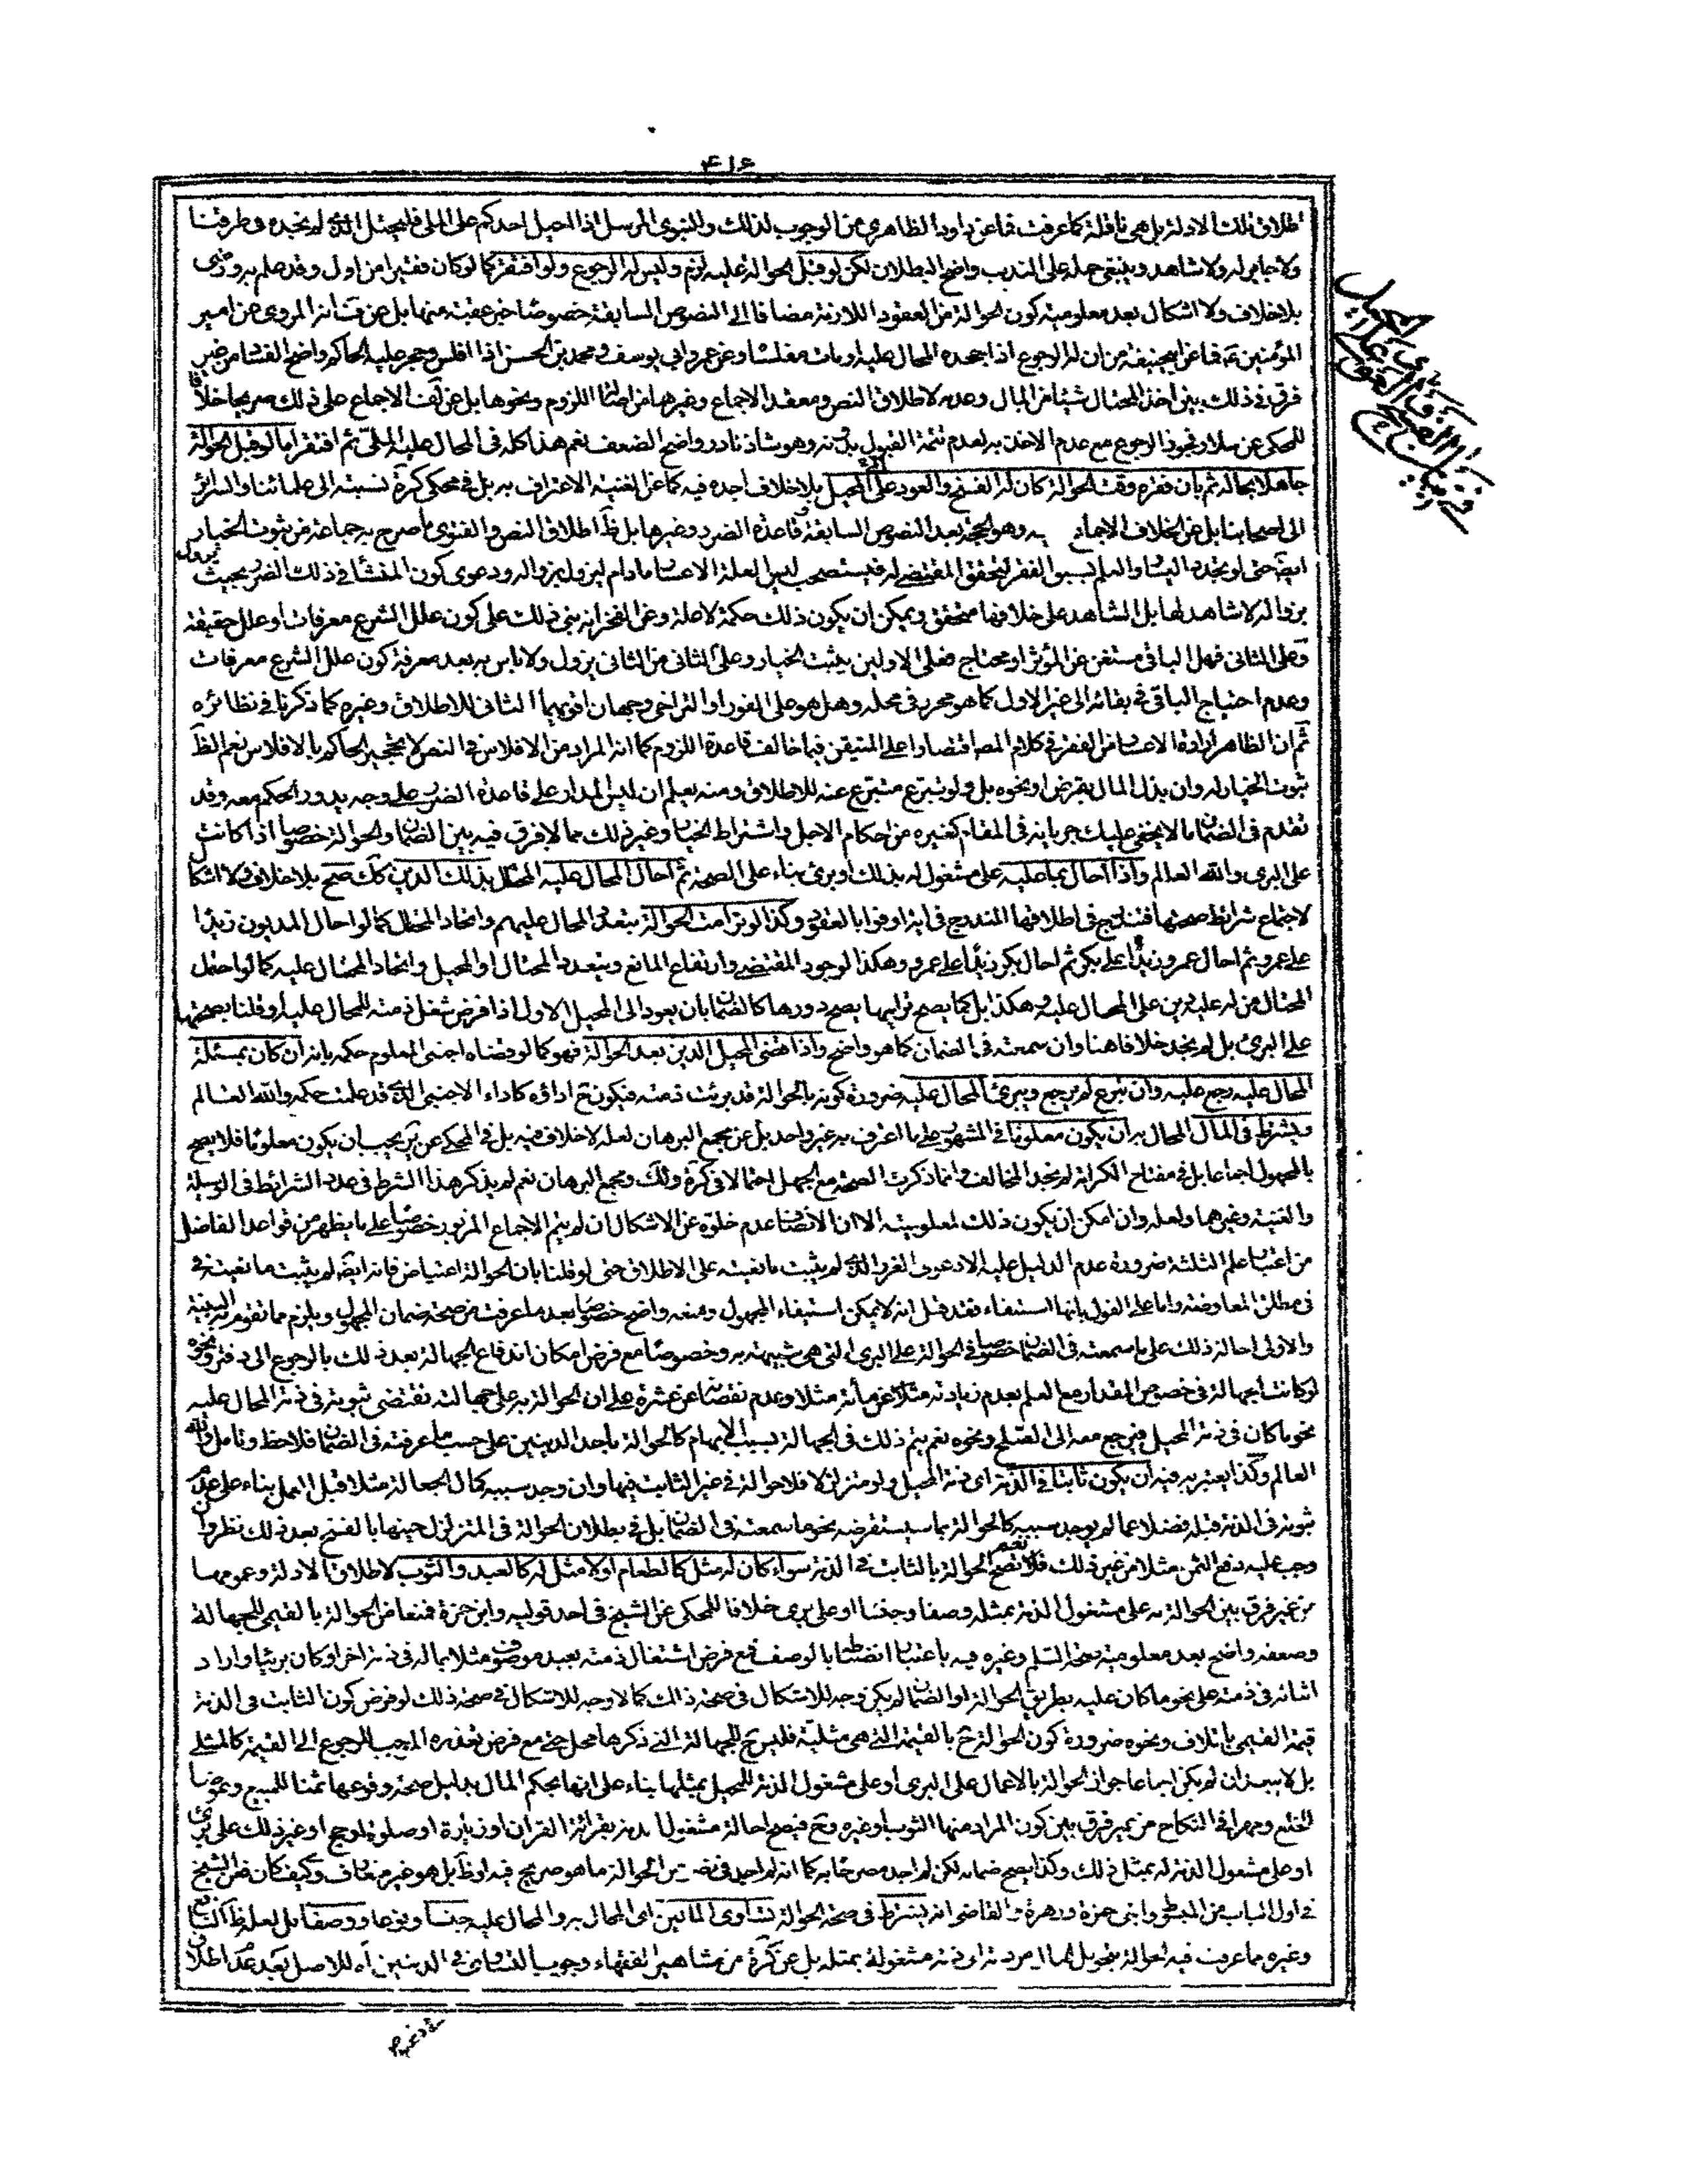 ۴۱۶
اطلاق تلك الادلة بل هي نافلة كما عرفت فما عن داود الظاهري من الوجوب لذلك وللنبوي المرسل اذا احيل احدكم على الملي فليحتل الذي لم نجده في طرقنا
ولا جابر له ولا شاهد وينبغي حمله على الندب واضح البطلان لكن لو قبل الحوالة عليه لزم وليس له الرجوع ولو افتقر كما لو كان فقيرا من اول وقد علم به ورضي
بلا خلاف ولا اشكال بعد معلومية كون الحوالة من العقود اللازمة مضافا الى النصوص السابقة خصوصا خبر عقبة منها بل عن المروي عن امير
المؤمنين ع فما عن ابيحنيفة من ان له الرجوع اذا جحده المحال عليه او مات مفلسا وعن عمر وابي يوسف ومحمد بن الحسن اذا افلس وحجر عليه الحاكم واضح الفساد من غير
فرق في ذلك بين اخذ المحتال شيئا من المال وعدمه لاطلاق النص ومعقد الاجماع وغيرهما من ادلة اللزوم ونحوها بل عن الاجماع على ذلك صريحا خلافا
للمحكي عن سلار فجوز الرجوع مع عدم الاخذ به لعدم تتمة القبول بدونه وهو شاذ نادر واضح الضعف نعم هذا كله في المحال عليه الملي ثم افتقر اما لو قبل الحوالة
جاهلا بحاله ثم بان فقره وقت الحوالة كان له الفسخ والعود على المحيل بلا خلاف اجده فيه كما عن الغنية الاعتراف به بل في محكي كرة نسبته الى علمائنا والسرائر
الى اصحابنا بل عن الخلاف الاجماع وهو الحجة بعد النصوص السابقة وقاعدة الضرر وغيرها بل ظ اطلاق النص والفتوى ما صرح به جماعة من ثبوت الخيار
ايضا حتى لو تجدد اليسار والعلم بسبق الفقر لتحقق المقتضي له فيستصحب ليس لعلة الاعسار ما دام ليزول بزواله ودعوى كون المنشأ في ذلك الضرر بحيث يزول
بزواله لا شاهد لها بل الشاهد على خلافها متحقق ويمكن ان يكون ذلك حكمة لا علة وعن الفخر انه بني ذلك على كون علل الشرع معرفات او علل حقيقة
وعلى الثاني فهل الباقي مستغن عن المؤثر او محتاج فعلى الاولين يثبت الخيار وعلى الثاني من الثاني يزول ولا باس به بعد معرفة كون علل الشرع معرفات
وعدم احتياج الباقي في بقائه الى غير الاول كما هو محرر في محله وهل هو على الفور او التراخي وجهان اقويهما الثاني للاطلاق وغيره كما ذكرنا في نظائره
ثم ان الظاهر ارادة الاعسار من الفقر في كلام المص اقتصارا على المتيقن فيما خالف قاعدة اللزوم كما انه المراد من الافلاس في النص لا تحجير الحاكم بالافلاس نعم الظ
ثبوت الخيار له وان بذل المال بقرض او نحوه بل ولو تبرع متبرع عنه للاطلاق ومنه يعلم ان ليس المدار على قاعدة الضرر على وجه يدور الحكم معه وقد
تقدم في الضمان ما لا يخفى عليك جريانه في المقام كغيره من احكام الاجل واشتراط الخيار وغير ذلك مما لا فرق فيه بين الضمان والحوالة خصوصا اذا كانت
على البري والله العالم واذا احال بما عليه على مشغول له بذلك او بري بناء على الصحة ثم احال المحال عليه المحتال بذلك الدين كك صح بلا خلاف ولا اشكال
لاجتماع شرائط صحتها فتندرج في اطلاقها المندرج في اية اوفوا بالعقود وكذا لو ترامت الحوالة بتعدد المحال عليهم واتحاد المحتال كما لو احال المديون زيدا
على عمرو ثم احال عمرو زيدا على بكر ثم احال بكر زيدا على عمرو وهكذا لوجود المقتضي وارتفاع المانع ويتعدد المحتال او المحيل واتحاد المحال عليه كما لو احتمل
المحتال من له عليه دين على المحال عليه وهكذا بل كما يصح تراميها يصح دورها كالضمان بان يعود الى المحيل الاول اذا فرض شغل ذمته للمحال عليه او قلنا بصحتها
على البرئ بل لم نجد خلافا هنا وان سمعته في الضمان كما هو واضح واذا قضى المحيل الدين بعد الحوالة فهو كما لو قضاه اجنبي المعلوم حكمه بانه ان كان بمسئلة
المحال عليه رجع عليه وان تبرع لم يرجع ويبرئ المحال عليه ضرورة كونه بالحوالة قد برئت ذمته فيكون ح اداؤه كاداء الاجنبي الذي قد علمت حكمه والله العالم
ويشترط في المال المحال به ان يكون معلوما في المشهور على ما اعترف به غير واحد بل عن مجمع البرهان لعله لا خلاف فيه بل في المحكي عن ير يجب ان يكون معلوما فلا يصح
بالمجهول اجماعا بل في مفتاح الكرامة لم نجد المخالف وانما ذكرت الصحة مع الجهل احتمالا في كرة ولك ومجمع البرهان نعم لم يذكر هذا الشرط في عدد الشرائط في الوسيلة
والغنية وغيرهما ولعله وان امكن ان يكون ذلك لمعلوميته الا ان الانصاف عدم خلوه عن الاشكال ان لم يتم الاجماع المزبور خصوصا على ما يظهر من قواعد الفاضل
من اعتبار علم الثلثة ضرورة عدم الدليل عليه الا دعوى الغرر الذي لم يثبت مانعيته على الاطلاق حتى لو قلنا بان الحوالة اعتياض فانه ايضا لم يثبت مانعيته في
في مطلق المعاوضة واما على القول بانها استيفاء فقد قيل انه لا يمكن استيفاء المجهول ومنعه واضح خصوصا بعد ما عرفت من صحة ضمان المجهول ويلزم ما تقوم به البينة
والاولى احالة ذلك على ما سمعته في الضمان خصوصا في الحوالة على البري التي هي شبيهة به وخصوصا مع فرض امكان اندفاع الجهالة بعد ذلك بالرجوع الى دفتر ونحوه
لو كانت الجهالة في خصوص المقدار مع العلم بعدم زيادته مثلا عن مأة مثلا وعدم نقصانه عن عشرة على ان الحوالة به على جهالته تقتضي ثبوته في ذمة المحال عليه
نحو ما كان في ذمة المحيل فيرجع معه الى الصلح ونحوه نعم يتم ذلك في الجهالة بسبب الابهام كالحوالة باحد الدينين على حسب ما عرفته في الضمان فلاحظ وتامل والله
العالم وكذا يعتبر فيه ان يكون ثابتا في الذمة اي ذمة المحيل ولو متزلزلا فلا حوالة في غير الثابت فيها وان وجد سببه كمال الجعالة مثلا قبل العمل بناء على عدم
ثبوته في الذمة قبله فضلا عما لم يوجد سببه كالحوالة بما سيستقرضه نحو ما سمعته في الضمان بل في بطلان الحوالة في المتزلزل حينها بالفسخ بعد ذلك نظر وان
وجب عليه دفع الثمن مثلا من غير ذلك نعم تصح الحوالة بالثابت في الذمة سواء كان له مثل كالطعام او لا مثل له كالعبد والثوب لاطلاق الادلة وعمومها
من غير فرق بين الحوالة به على مشغول الذمة بمثله وصفا وجنسا او على بري خلافا للمحكي عن الشيخ في احد قوليه وابن حمزة فمنعا من الحوالة بالقيمي للجهالة
وضعفه واضح بعد معلومية صحة السلم وغيره فيه باعتبار انضباطه بالوصف فمع فرض اشتغال ذمته بعبد موصوف مثلا بماله في ذمة اخر او كان بريئا واراد
اثباته في ذمته على نحو ما كان عليه بطريق الحوالة او الضمان لم يكن وجه للاشكال في صحة ذلك كما لا وجه للاشكال في صحة ذلك لو فرض كون الثابت في الذمة
قيمة القيمي باتلاف ونحوه ضرورة كون الحوالة ح بالقيمة التي هي مثلية فليس ح للجهالة التي ذكرها محل حتى مع فرض تعذره الموجب للرجوع الى القيمة كالمثلي
بل لا يبعد ان لم يكن اجماعا جواز الحوالة بالاعمال على البري او على مشغول الذمة للمحيل بمثلها بناء على انها بحكم المال بدليل صحة وقوعها ثمنا للمبيع وعوضا
للخلع ومهرا في النكاح من غير فرق بين كون المراد منها الثوب او غيره وح فيصح احالة مشغول الذمة بقرائة القران او زيارة او صلوة او حج او غير ذلك على بري
او على مشغول الذمة له بمثل ذلك وكذا يصح ضمانه لكن لم اجد مصرحا به كما انه لم اجد في الحوالة ما هو صريح فيه او ظ بل هو غير مناف وكيف كان فعن الشيخ
في اول الباب من المبسوط وابني حمزة وزهرة والقاضي انه يشترط في صحة الحوالة تساوي المالين اي المحال به والمحال عليه جنسا ونوعا ووصفا بل لعله ظ النافع
وغيره ما عرفت فيه الحوالة بتحويل المال من ذمة الى ذمة مشغولة بمثله بل عن كرة من مشاهير الفقهاء وجوب التساوي في الدينين للاصل بعد عدم اطلاق